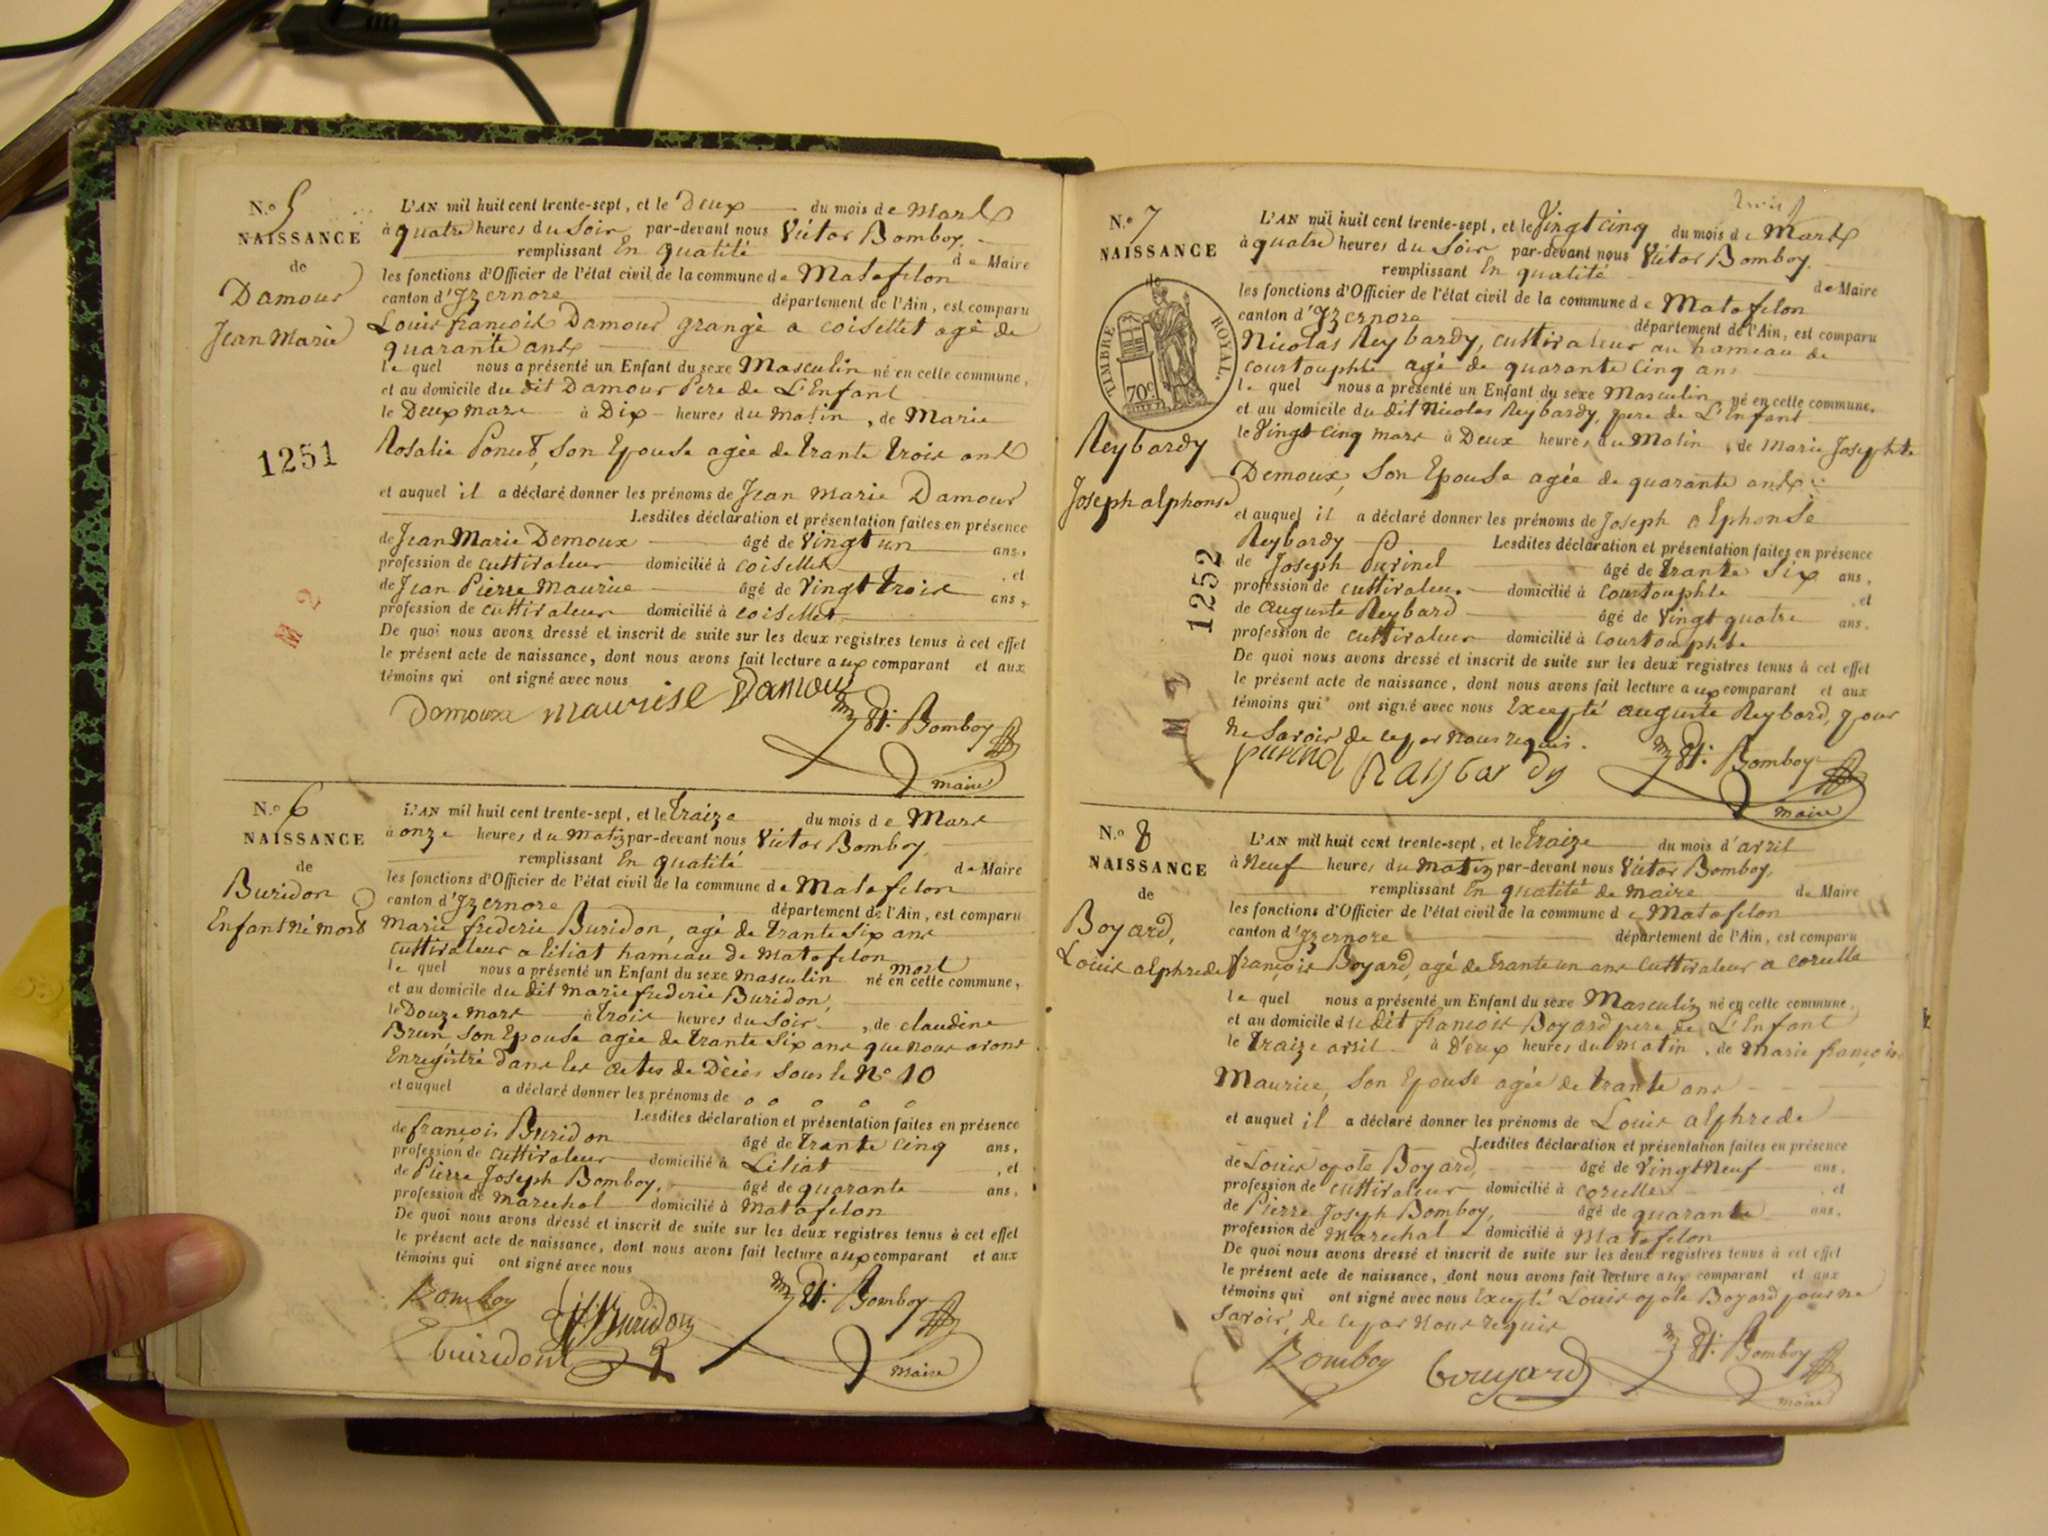 N.o 5
NAISSANCE
de
Damour
Jean Marie
1251
M 2
L'AN mil huit cent trente-sept, et le Deux du mois de Mars
à quatre heures du Soir, par-devant nous Victor Bomboy,
remplissant En qualité de Maire
les fonctions d'Officier de l'état civil de la commune de Matafelon
canton d'Izernore département de l'Ain, est comparu
Louis françois Damour grangé a coisellet agé de
quarante ans
le quel nous a présenté un Enfant du sexe Masculin né en cette commune,
et au domicile du dit Damour Pere de L'Enfant
le Deux mars à Dix heures du matin, de Marie
Rosalie Poncet, Son Epouse agée de trante trois ans
et auquel il a déclaré donner les prénoms de Jean Marie Damour
Lesdites déclaration et présentation faites en présence
de Jean Marie Demoux âgé de Vingt un ans,
profession de cultivateur domicilié à coisellet , et
de Jean Pierre Maurice âgé de Vingt trois ans,
profession de cultivateur domicilié à coisellet
De quoi nous avons dressé et inscrit de suite sur les deux registres tenus à cet effet
le présent acte de naissance, dont nous avons fait lecture aux comparant et aux
témoins qui ont signé avec nous
Demoux maurise Damour
Bomboy
maire
N.o 6
NAISSANCE
de
Buridon
Enfant né mort
L'AN mil huit cent trente-sept, et le traize du mois de Mars
à onze heures du matin par-devant nous Victor Bomboy,
remplissant En qualité de Maire
les fonctions d'Officier de l'état civil de la commune de Matafelon
canton d'Izernore département de l'Ain, est comparu
Marie frederic Buridon, agé de trante Six ans
cultivateur a liliat hameau de Matafelon
le quel nous a présenté un Enfant du sexe masculin né mort en cette commune,
et au domicile du dit Marie frederic Buridon,
le Douze mars à trois heures du Soir, de claudine
Brun Son Epouse agée de trante Six ans que nous avons
Enregistré dans les actes de Décès sous le No 10
et auquel a déclaré donner les prénoms de
Lesdites déclaration et présentation faites en présence
de françois Buridon âgé de trante cinq ans,
profession de cultivateur domicilié à Liliat , et
de Pierre Joseph Bomboy, âgé de quarante ans,
profession de marechal domicilié à Matafelon
De quoi nous avons dressé et inscrit de suite sur les deux registres tenus à cet effet
le présent acte de naissance, dont nous avons fait lecture aux comparant et aux
témoins qui ont signé avec nous
Bomboy Buridon Bomboy
buiredont maire
N.o 7
NAISSANCE
de
TIMBRE ROYAL.
70c
Reybardy
Joseph alphonse
1252
M 2
L'AN mil huit cent trente-sept, et le Vingt cinq du mois de Mars
à quatre heures du Soir par-devant nous Victor Bomboy.
remplissant En qualité de Maire
les fonctions d'Officier de l'état civil de la commune de Matafelon
canton d'Izernore département de l'Ain, est comparu
Nicolas Reybardy, cultivateur au hameau de
courtouphle agé de quarante cinq ans
le quel nous a présenté un Enfant du sexe Masculin né en cette commune,
et au domicile du dit Nicolas Reybardy, pere de L'Enfant
le Vingt cinq mars à Deux heures du Matin, de Marie Josephte
Demoux, Son Epouse agée de quarante ans
et auquel il a déclaré donner les prénoms de Joseph alphonse
Reybardy Lesdites déclaration et présentation faites en présence
de Joseph Purinel âgé de trante Six ans,
profession de cultivateur domicilié à courtouphle , et
de auguste Reybard âgé de Vingt quatre ans.
profession de cultivateur domicilié à courtouphle
De quoi nous avons dressé et inscrit de suite sur les deux registres tenus à cet effet
le présent acte de naissance, dont nous avons fait lecture aux comparant et aux
témoins qui ont signé avec nous Excepté auguste Reybard, pour
ne Savoir de ce par nous requis.
purinel Raybardy Bomboy
maire
N.o 8
NAISSANCE
de
Boyard,
Louis alphrede
L'AN mil huit cent trente-sept, et le traize du mois d'avril
à Neuf heures du matin par-devant nous Victor Bomboy,
remplissant En qualité de maire de Maire
les fonctions d'Officier de l'état civil de la commune de Matafelon
canton d'Izernore département de l'Ain, est comparu
françois Boyard, agé de trante un ans cultivateur a corcelle
le quel nous a présenté un Enfant du sexe Masculin né en cette commune,
et au domicile du dit françois Boyard pere de L'Enfant
le traize avril à Deux heures du matin, de Marie françoise
Maurice, Son Epouse agée de trante ans
et auquel il a déclaré donner les prénoms de Louis alphrede
Lesdites déclaration et présentation faites en présence
de Louis Boyard, âgé de Vingt Neuf ans,
profession de cultivateur domicilié à corcelle , et
de Pierre Joseph Bomboy, âgé de quarante ans,
profession de marechal domicilié à Matafelon
De quoi nous avons dressé et inscrit de suite sur les deux registres tenus à cet effet
le présent acte de naissance, dont nous avons fait lecture aux comparant et aux
témoins qui ont signé avec nous Excepté Louis Boyard pour ne
Savoir, de ce par nous requis
Bomboy bouyard Bomboy
maire